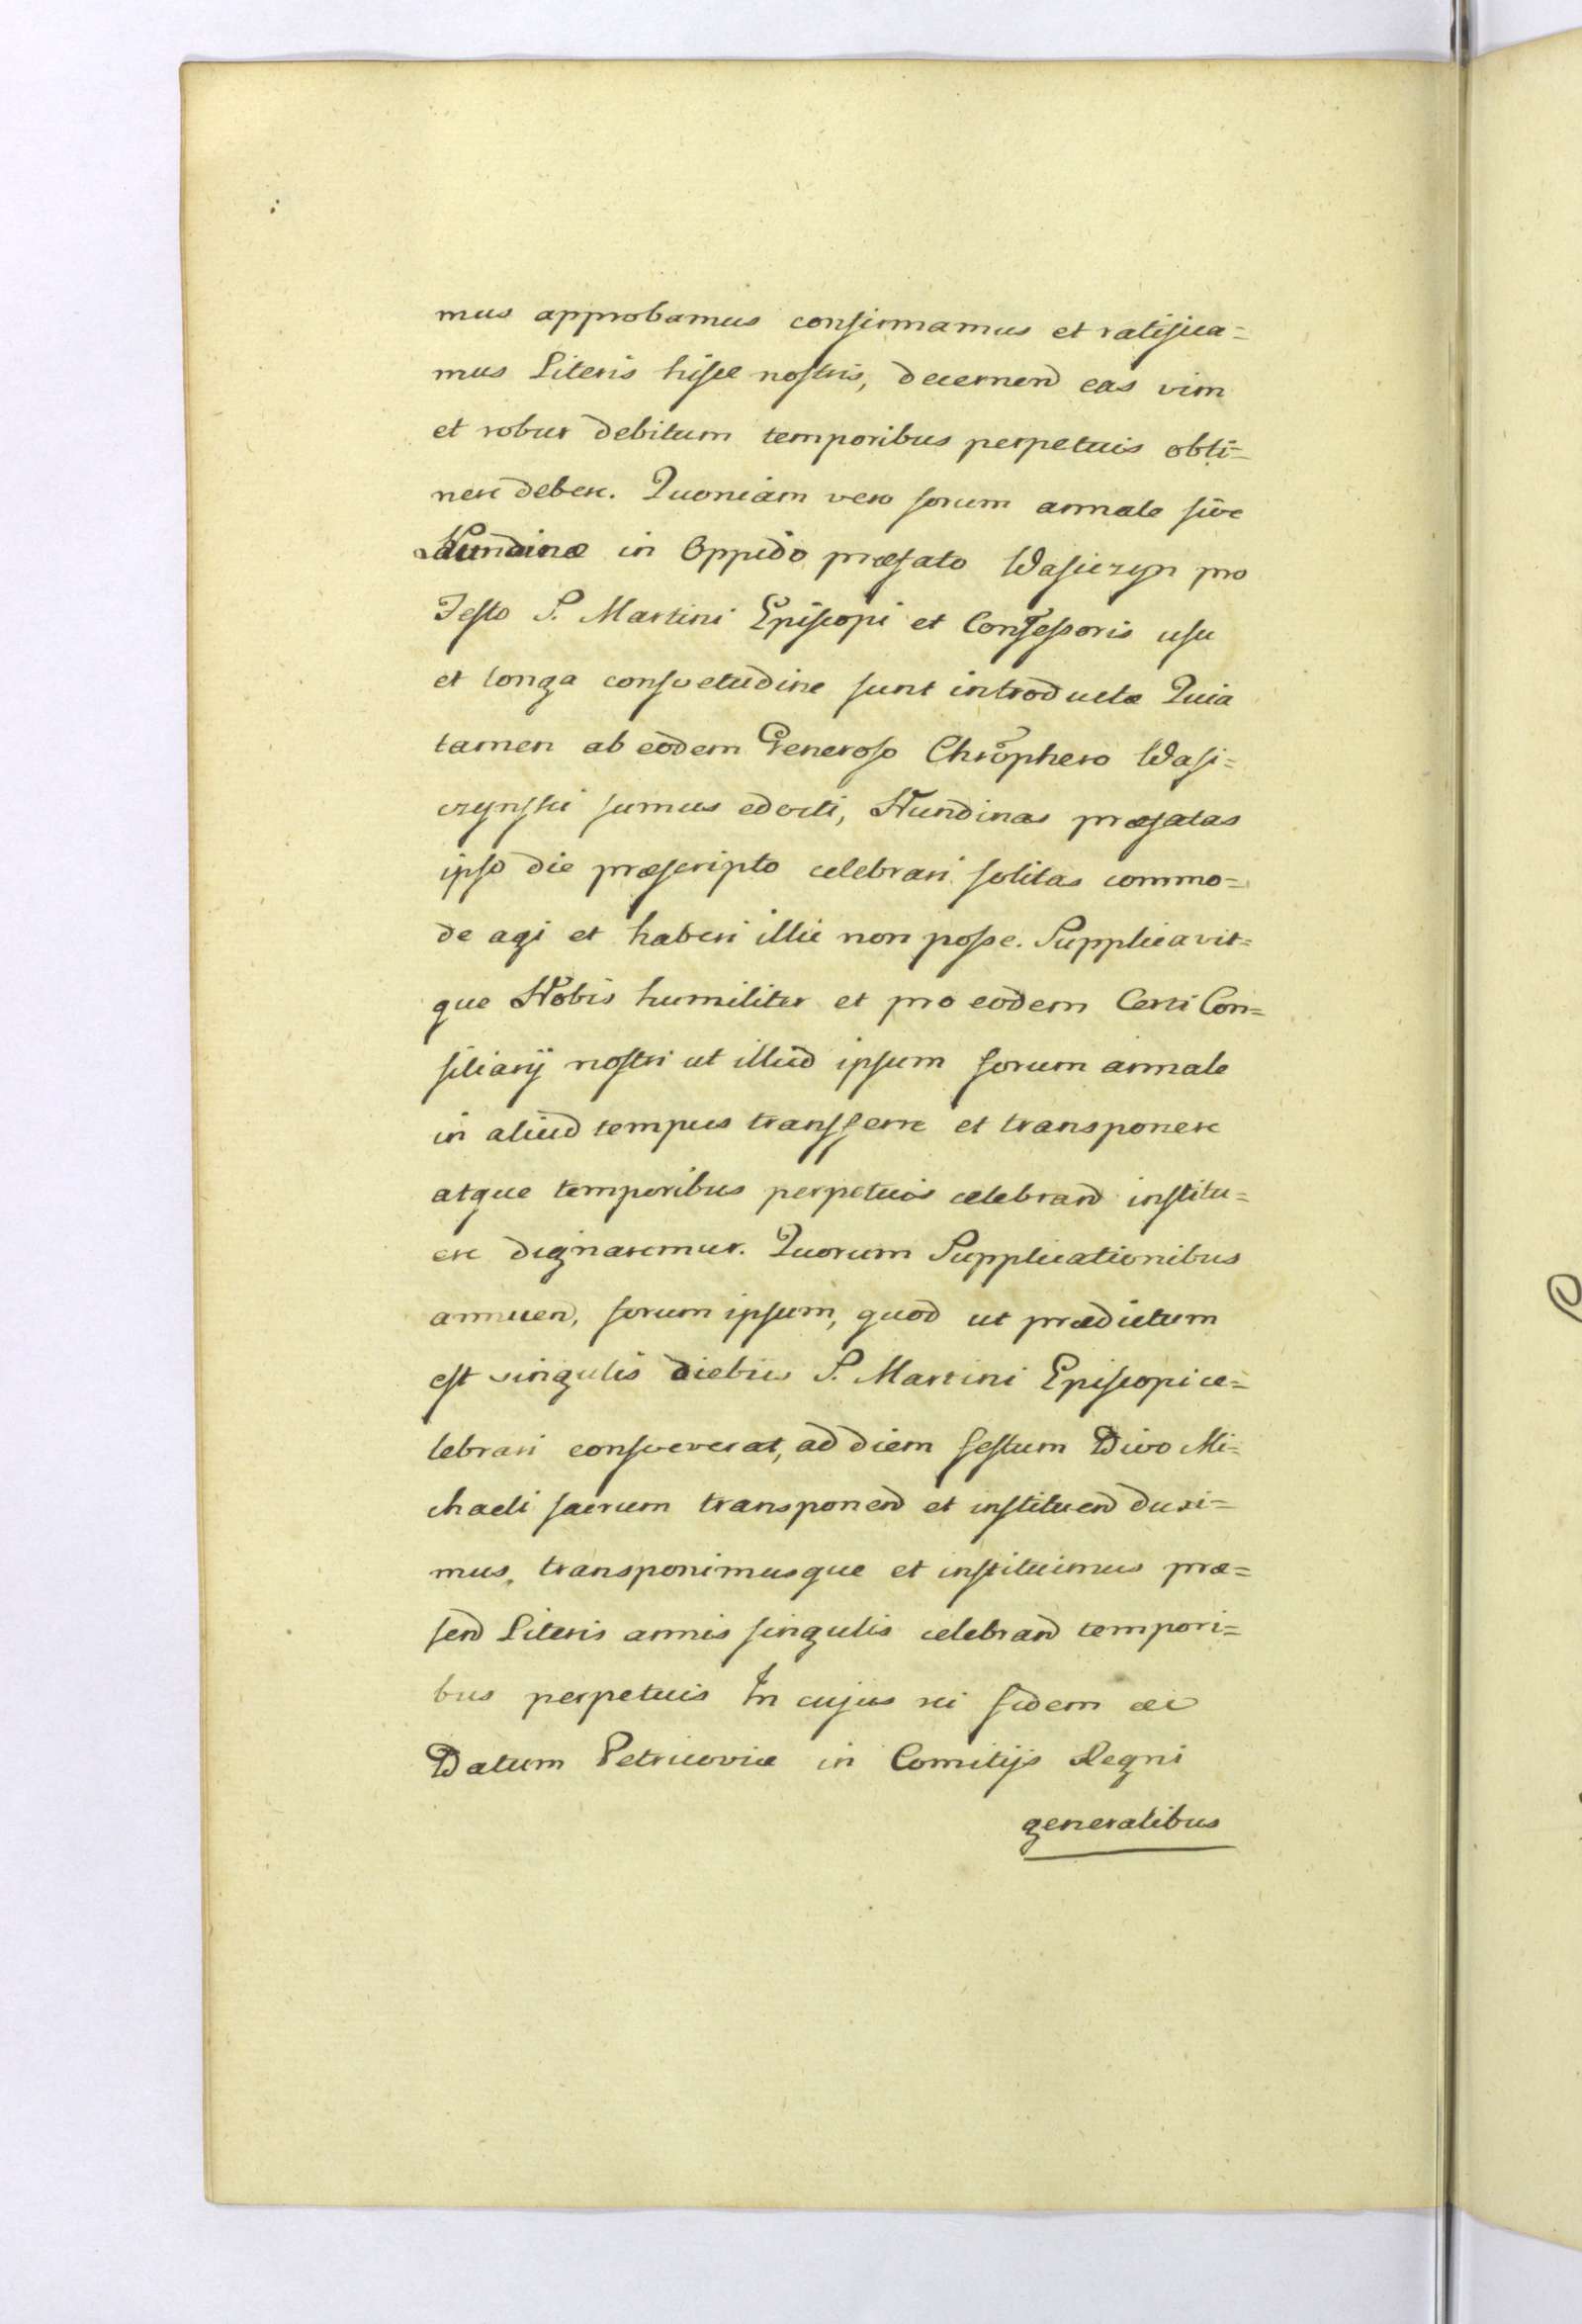 mus approbamus confirmamus et ratifica=
mus Literis hisce nostris, decernend eas vim
et robur debitum temporibus perpetuis obti=
nere debere. Quoniam vero forum annale sive
Nundinæ in Oppido præfato Wasiczyn pro
Festo S. Martini Episcopi et Confessoris usu
et longa consvetudine sunt introductæ Quia
tamen ab eodem Generoso Chrophero Wasi=
czynski sumus edocti, Nundinas præfatas
ipso die præscripto celebrari solitas commo=
de agi et haberi illic non posse. Supplicavit=
que Nobis humiliter et pro eodem Certi Con=
siliarij nostri ut illud ipsum forum annale
in aliud tempus transferre et transponere
atque temporibus perpetuis celebrand institu=
ere dignaremur. Quorum Supplicationibus
annuen, forum ipsum, quod ut prædictum
est singulis diebus S. Martini Episcopi ce=
lebrari consveverat, ad diem festum Divo Mi=
chaeli sacrum transponend et instituend duxi=
mus, transponimusque et instituimus præ=
send Literis annis singulis celebrand tempori=
bus perpetuis In cujus rei fidem
Datum Petricoviæ in Comitijs Regni
generalibus